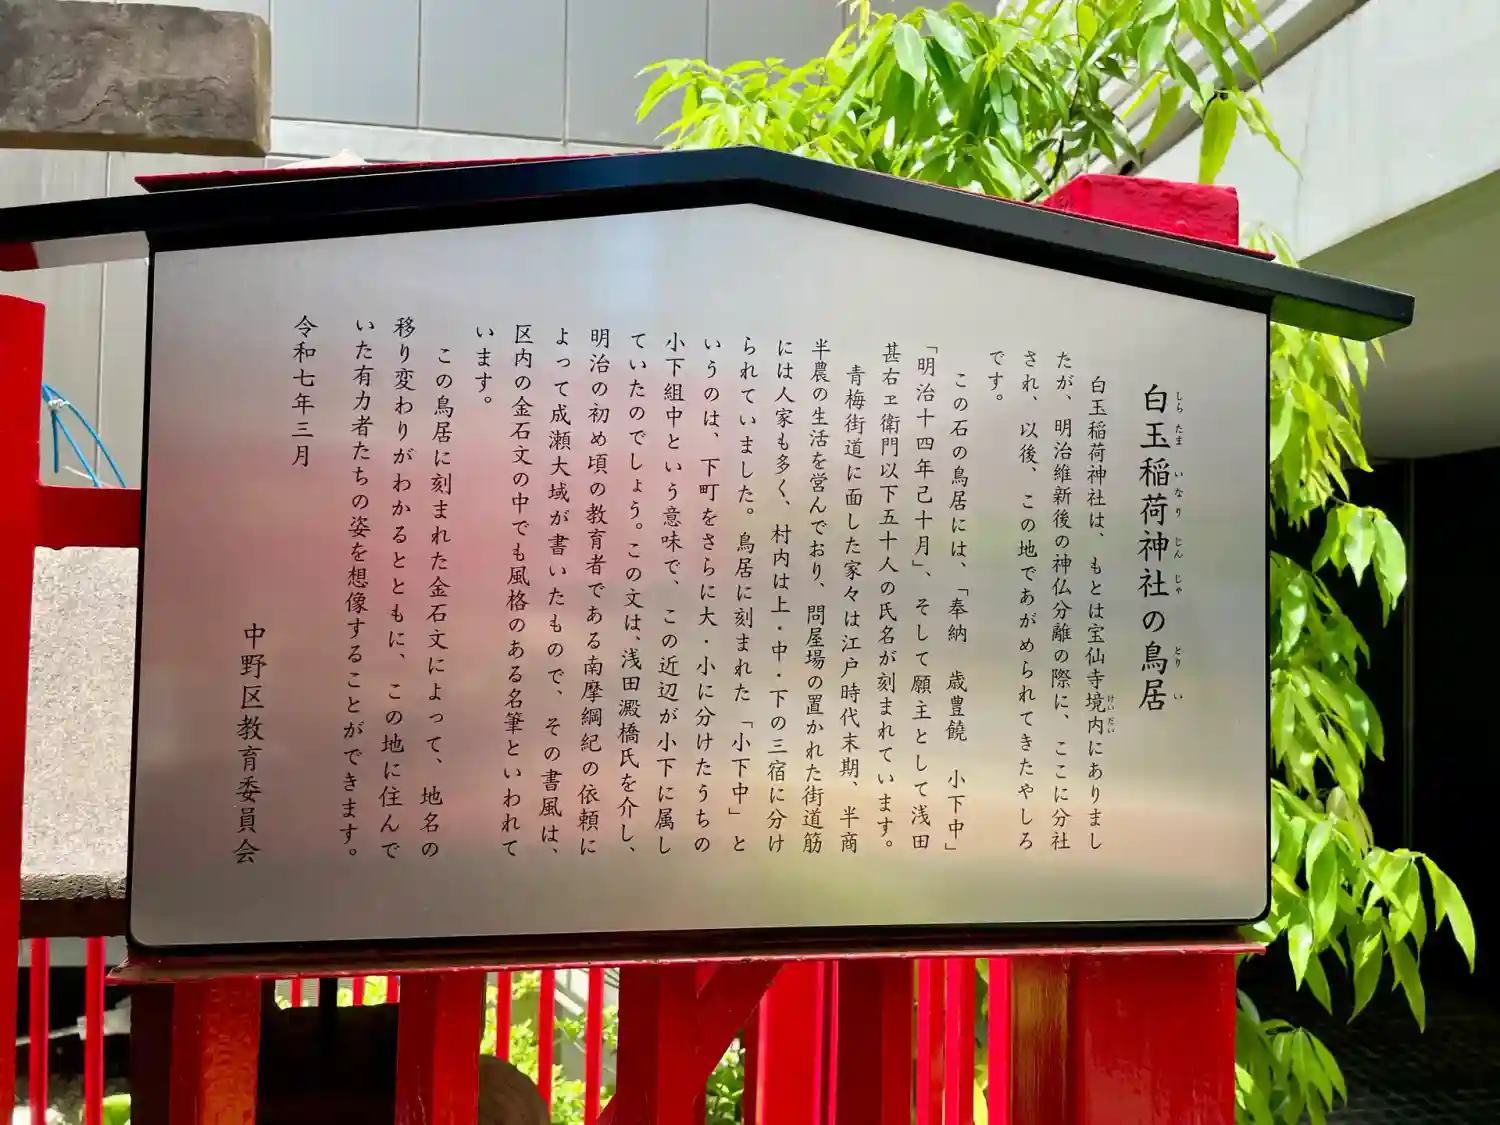 白玉稲荷神社の鳥居
しらたまいなりじんじゃ とりい
白玉稲荷神社は、もとは宝仙寺境内にありまし
けいだい
たが、明治維新後の神仏分離の際に、ここに分社
され、以後、この地であがめられてきたやしろ
です。
この石の鳥居には、「奉納 歳豊饒 小下中」
「明治十四年己十月」、そして願主として浅田
甚右ヱ衛門以下五十人の氏名が刻まれています。
青梅街道に面した家々は江戸時代末期、半商
半農の生活を営んでおり、問屋場の置かれた街道筋
には人家も多く、村内は上・中・下の三宿に分け
られていました。鳥居に刻まれた「小下中」と
いうのは、下町をさらに大・小に分けたうちの
小下組中という意味で、この近辺が小下に属し
ていたのでしょう。この文は、浅田澱橋氏を介し、
明治の初め頃の教育者である南摩綱紀の依頼に
よって成瀬大域が書いたもので、その書風は、
区内の金石文の中でも風格のある名筆といわれて
います。
この鳥居に刻まれた金石文によって、地名の
移り変わりがわかるとともに、この地に住んで
いた有力者たちの姿を想像することができます。
令和七年三月
中野区教育委員会